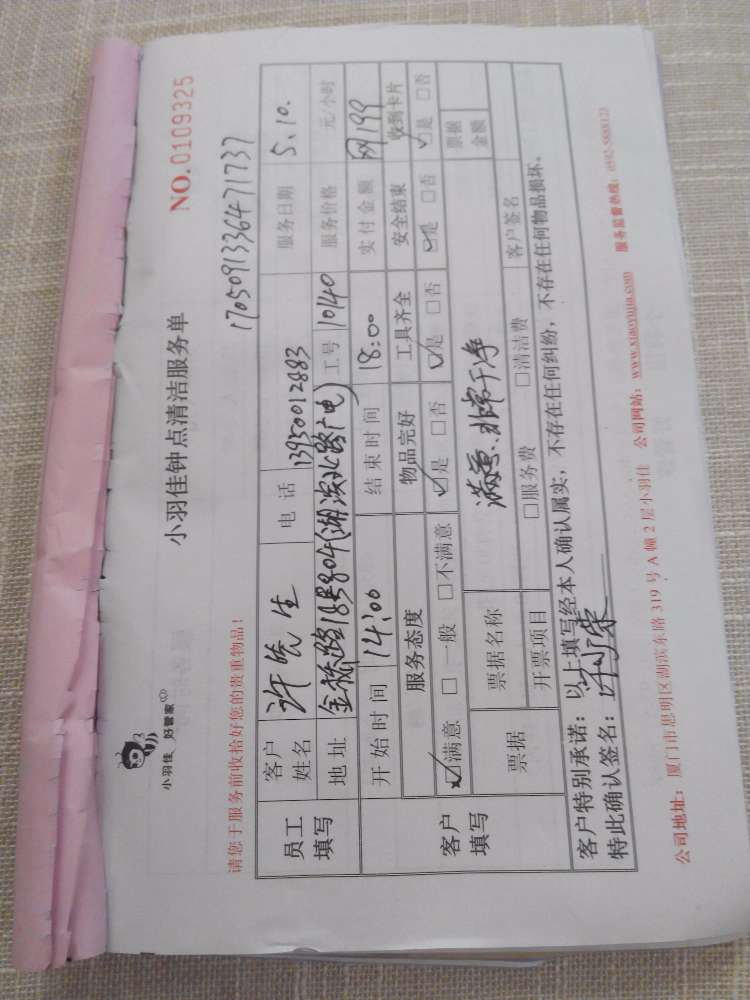 小羽佳 好管家
小羽佳钟点清洁服务单
NO.0109325
请您于服务前收拾好您的贵重物品!
170509133647 1737
员工填写
客户姓名 许先生 电话 13950012883 服务日期 5.10.
地址 金桥路18号804(湖滨北路广电) 工号 10140 服务价格 元/小时
开始时间 14:00 结束时间 18:00 实付金额 199
客户填写
服务态度 物品完好 工具齐全 安全结束 收到卡片
☑满意 □一般 □不满意 ☑是 □否 ☑是 □否 ☑是 □否 ☑是 □否
满意、非常干净
票据 票据名称 票据金额
开票项目 □服务费 □清洁费 客户签名
客户特别承诺:以上填写经本人确认属实,不存在任何纠纷,不存在任何物品损坏。
特此确认签名:
公司地址:厦门市思明区湖滨东路319号A幢2层小羽佳 公司网站:www.xiaoyujia.com 服务监督热线:0592-5888123